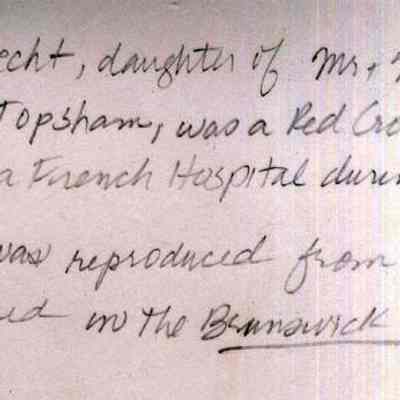 echt, daughter of Mr +
Topsham, was a Red Cro
a French Hospital durin
was reproduced from
ed in the Brunswick